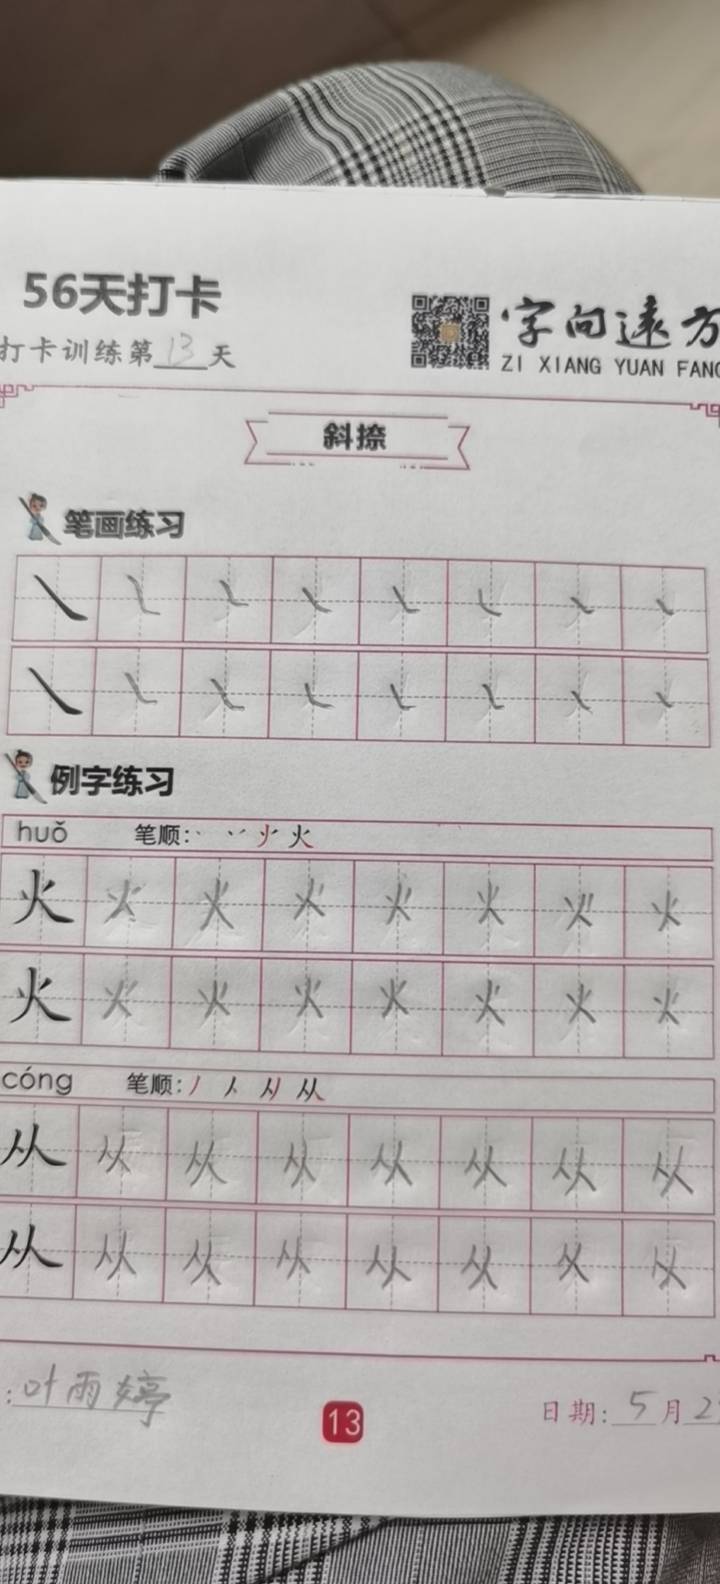 56天打卡
打卡训练第13天
字向远方
ZI XIANG YUAN FANG
斜捺
笔画练习
例字练习
huǒ 笔顺: 火
火 火 火 火 火 火 火 火
火 火 火 火 火 火 火 火
cóng 笔顺: 从
从 从 从 从 从 从 从 从
从 从 从 从 从 从 从 从
: 叶雨婷
13
日期: 5月2